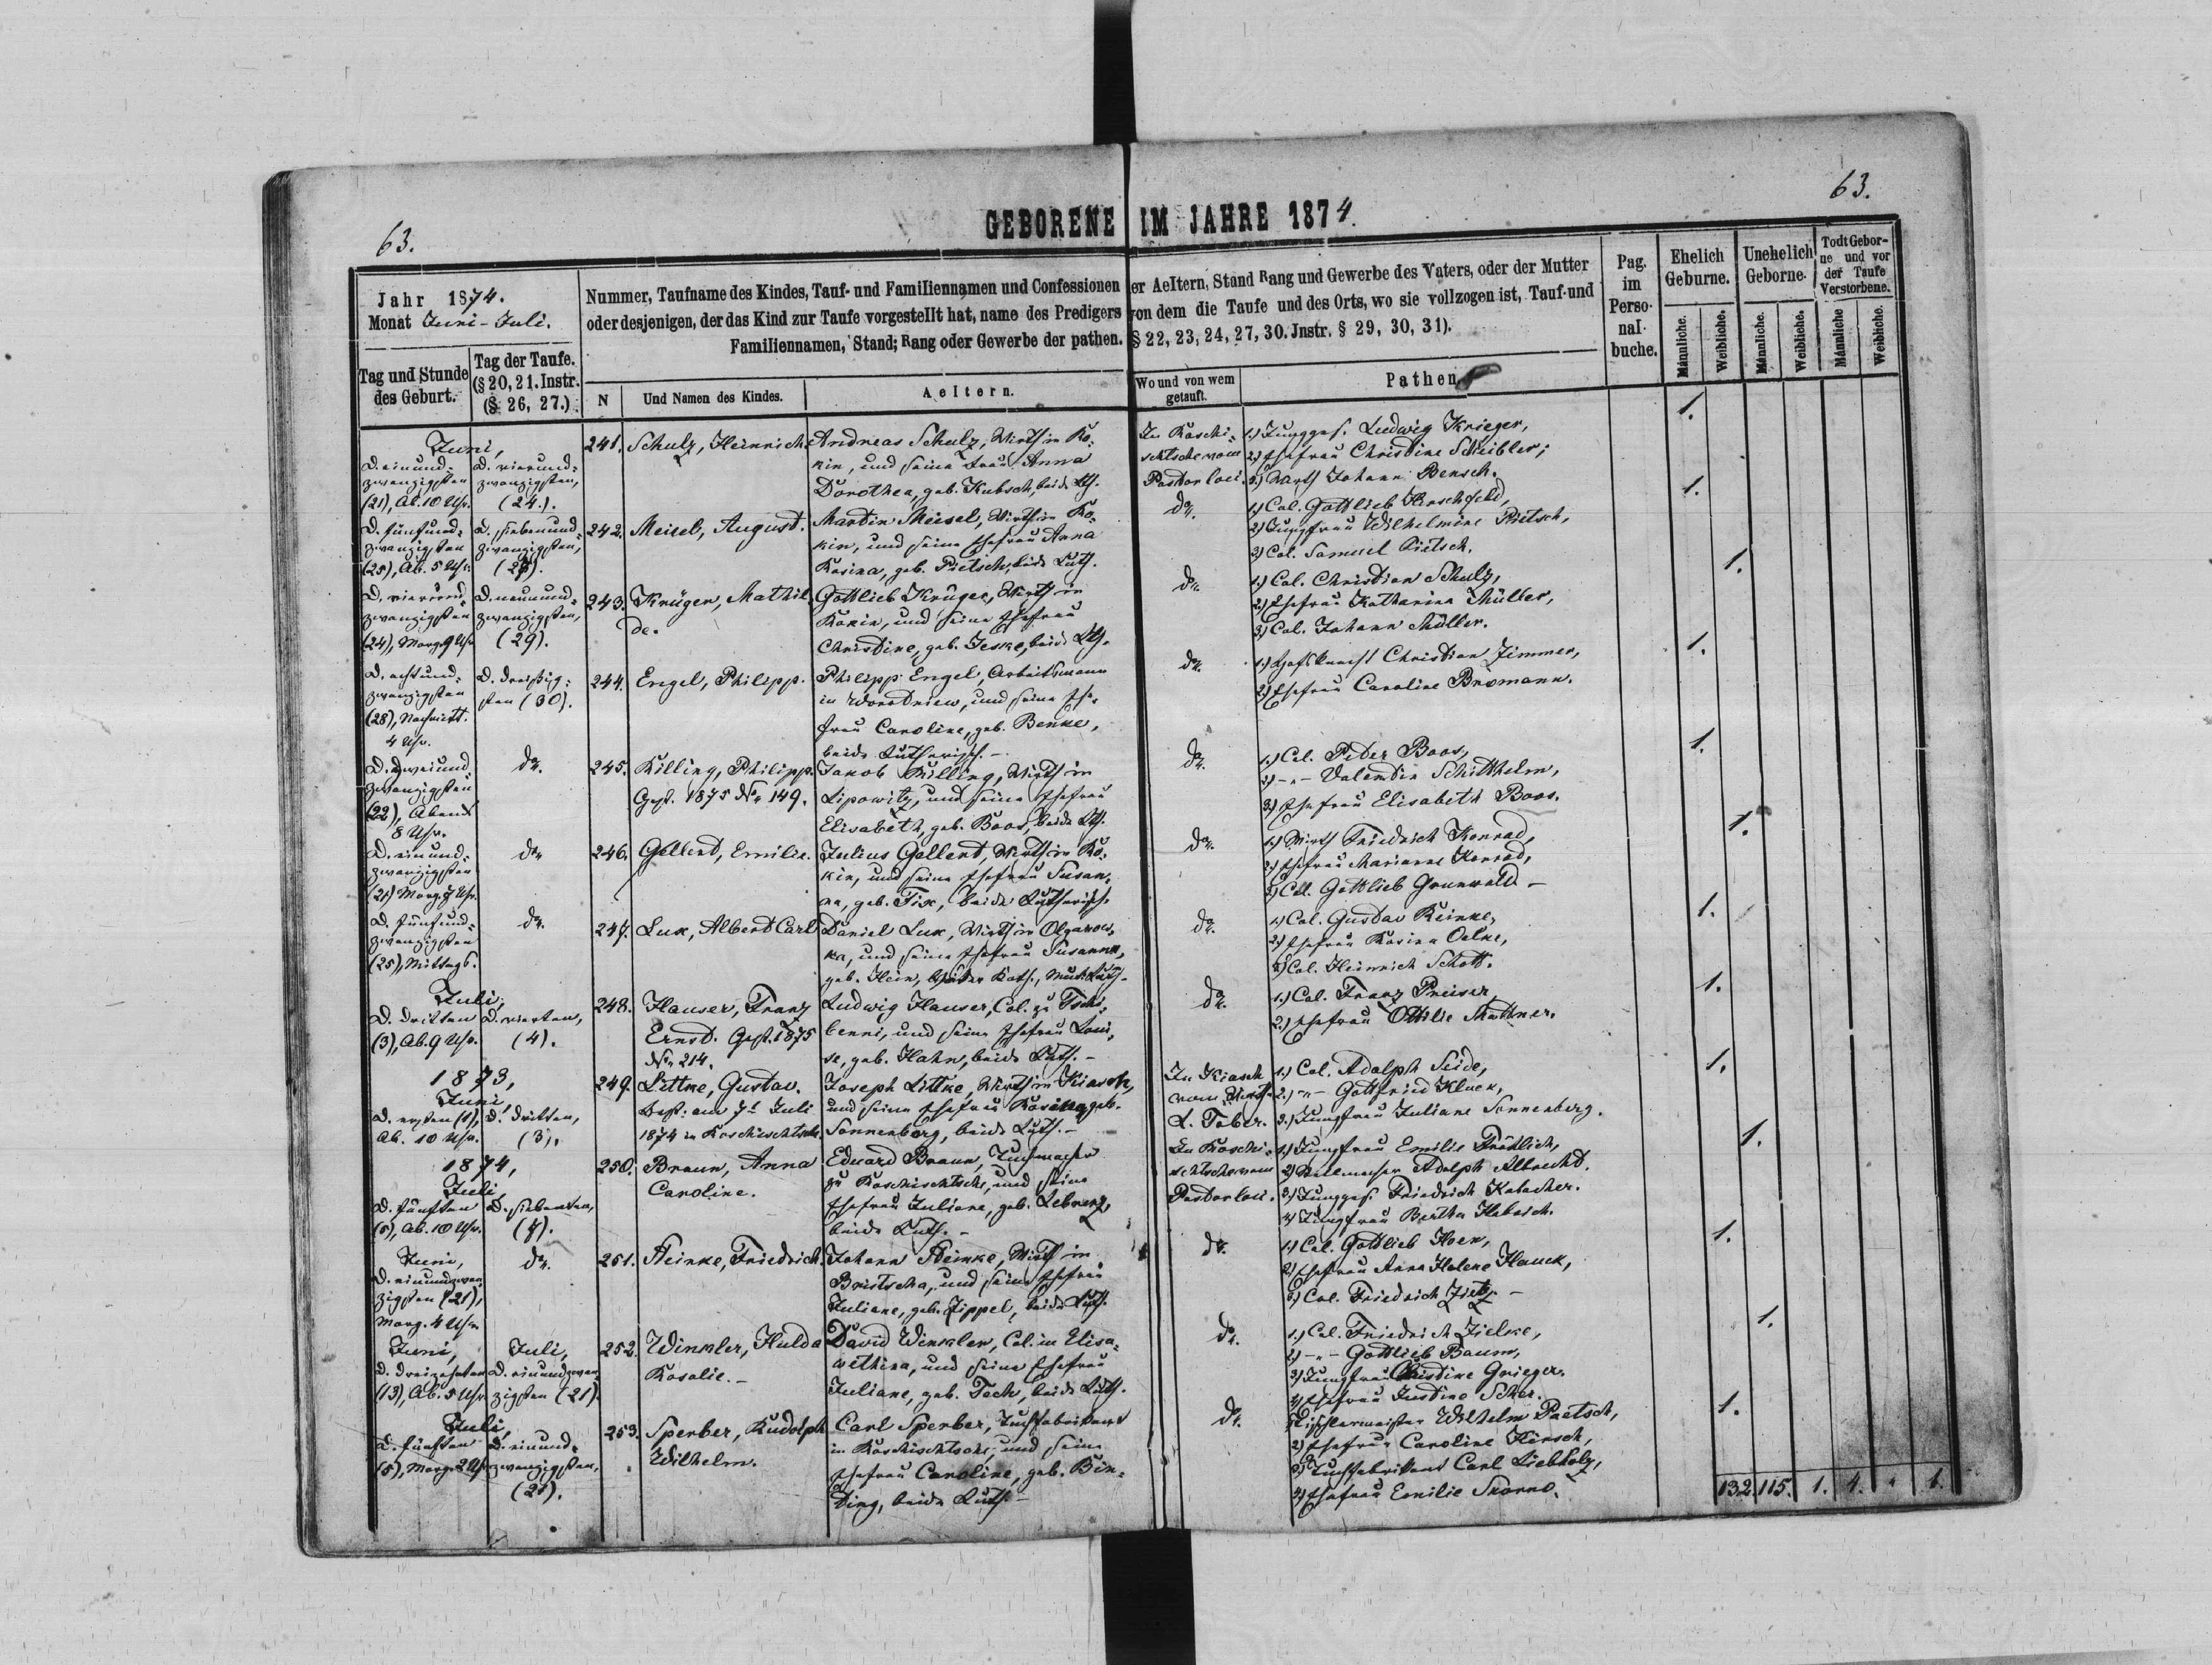 63.
63.
GEBORENE IM JAHRE 1874.
Jahr 1874.
Monat Juni-Juli.
Tag und Stunde
des Geburt.
Tag der Taufe.
(§ 20, 21. Instr.
(§ 26, 27.)
Nummer, Taufname des Kindes, Tauf- und Familiennamen und Confessionen der Aeltern, Stand Rang und Gewerbe des Vaters, oder der Mutter
oder desjenigen, der das Kind zur Taufe vorgestellt hat, name des Predigers von dem die Taufe und des Orts, wo sie vollzogen ist, Tauf-und
Familiennamen, Stand; Rang oder Gewerbe der pathen. § 22, 23, 24, 27, 30. Jnstr. § 29, 30, 31).
N
Und Namen des Kindes.
Aeltern.
Wo und von wem
getauft.
Pathen.
Pag.
im
Perso-
nal-
buche.
Ehelich
Geburne.
Unehelich
Geborne.
Todt Gebor-
ne und vor
der Taufe
Verstorbene.
Männliche.
Weibliche.
Männliche.
Weibliche.
Männliche
Weibliche.
Juni,
D. einund-
zwanzigsten
(21), Ab. 10 Uhr.
D. vierund-
zwanzigsten,
(24.).
241.
Schulz, Heinrich.
Andreas Schulz, Wirth in Ro-
und seine Frau Anna
Dorothea, geb. Kubsch, beide Lth.
In Roschi-
schtsche vom
Pastor loci.
1.) Junggs. Ludwig Krieger,
2.) Ehefrau Christine Scheibler;
3.) Wirth Johann Bensch.
1.
D. fünfund-
zwanzigsten
(25), Ab. 5 Uhr.
D. siebenund-
zwanzigsten,
(27).
242.
Meisel, August.
Martin Meisel, Wirth in Ro-
und seine Ehefrau Anna
Rosina, geb. Pietsch, beide Luth.
do.
1.) Col. Gottlieb Hirschfeld,
2.) Jungfrau Wilhelmine Pietsch,
3.) Col. Samuel Pietsch.
1.
D. vierund-
zwanzigsten
(24), Morg. 9 Uhr
D. neunund-
zwanzigsten,
(29).
243.
Krüger, Mathil-
de.
Gottlieb Krüger, Wirth in
und seine Ehefrau
Christine, geb. Jeske, beide Lth.
do.
1.) Col. Christian Schulz,
2.) Ehefrau Katharina Müller,
3.) Col. Johann Müller.
1.
D. achtund-
zwanzigsten
(28), Nachmitt.
4 Uhr.
D. dreißig-
sten (30).
244.
Engel, Philipp.
Philipp Engel, Arbeitsmann
in und seine Ehe-
frau Caroline, geb. Benke,
beide Lutherisch. -
do.
1.) Hofsknecht Christian Zimmer,
2.) Ehefrau Caroline Bromann.
1.
D. zweiund-
zwanzigsten
(22), Abends
8 Uhr.
do.
245.
Killing, Philipp.
Gest. 1875 No 149.
Jakob Killing, Wirth in
Lipowitz, und seine Ehefrau
Elisabeth, geb. Boos, beide Lth.
do.
1.) Col. Peter Boos,
2.) - " - Valentin Schitthelm,
3.) Ehefrau Elisabeth Boos.
1.
D. einund-
zwanzigsten
(21) Morg. 7 Uhr.
do.
246.
Gellert, Emilie.
Julius Gellert, Wirth in Ro-
und seine Ehefrau Susan-
na, geb. Fix, beide Lutherisch
do.
1.) Wirth Friedrich Konrad,
2.) Ehefrau Marianne Konrad,
3.) Col. Gottlieb Grunwald -
1.
D. fünfund-
zwanzigsten
(25), Mittags.
do.
247.
Lux, Albert Carl
Daniel Lux, Wirth in Olganow-
ka, und seine Ehefrau Susanna,
geb. Hein, Vater Kath., Mutt. Luth -
do.
1.) Col. Gustav Reinke,
2.) Ehefrau Rosina Oelke,
3.) Col. Heinrich Schott.
1.
Juli,
D. dritten
(3), Ab. 9 Uhr.
D. vierten,
(4).
248.
Hauser, Franz
Ernst. Gest. 1875
No 214.
Ludwig Hauser, Col. zu Tschi-
benni, und seine Ehefrau Loui-
se, geb. Hahn, beide Luth. -
do.
1.) Col. Franz Preiser,
2.) Ehefrau Ottilie Mattner.
1.
1873,
Juni,
D. ersten (1),
Ab. 10 Uhr.
D. dritten,
(3),
249.
Littke, Gustav.
Best. am 7t Juli
1874 in Roschischtsche.
Joseph Littke, Wirth in Kiasch,
und seine Ehefrau Rosina, geb.
Sonnenberg, beide Luth. -
In Kiasch
vom
L. Tober.
1.) Col. Adolph Seide,
2.) - " - Gottfried Kluck,
3.) Jungfrau Juliane Sonnenberg.
1.
1874,
Juli,
D. fünften
(5), Ab. 10 Uhr.
D. siebenten,
(7).
250.
Braun, Anna
Caroline.
Eduard Braun, Tuchmacher
zu Roschischtsche, und seine
Ehefrau Juliane, geb. Lebrenz,
beide Luth. -
In Roschi-
schtsche vom
Pastor loci.
1.) Jungfrau Emilie Frötlich,
2.) Adolph Albrecht.
3.) Junggs. Friedrich Kabacher.
4.) Jungfrau Bertha Habasch.
1.
Juni,
D. einundzwan-
zigsten (21),
Morg. 4 Uhr
do.
251.
Steinke, Friedrich.
Johann Steinke, Wirth in
Boristscha, und seine Ehefrau
Juliane, geb. Zippel, beide Luth.
do.
1.) Col. Gottlieb Horn,
2.) Ehefrau Anna Helene Hauck,
3.) Col. Friedrich Zietz. -
1.
Juni,
D. dreizehnten
(13), Ab. 5 Uhr
Juli,
D. einundzwan-
zigsten (21)
252.
Winkler, Hulda
Rosalie. -
David Winkler, Col. in Elisa-
wethina, und seine Ehefrau
Juliane, geb. Tech, beide Luth.
do.
1.) Col. Friedrich Zielke,
2.) - " - Gottlieb Baum,
3.) Jungfrau Christine Grieger.
4.) Ehefrau Justine Scher.
1.
Juli,
D. fünften
(5), Morg. 2 Uhr
D. einund-
zwanzigsten,
(21).
253.
Sperber, Rudolph
Wilhelm.
Carl Sperber, Tuchfabrikant
in Roschischtsche, und seine
Ehefrau Caroline, geb. Bin-
ding, beide Luth. -
do.
1.) Tischlermeister Wilhelm Paetsch,
2.) Ehefrau Caroline Hirsch,
3.) Tuchfabrikant Carl Liebholz,
4.) Ehefrau Emilie Skorno.
1.
132. 115. 1. 4. " 1.